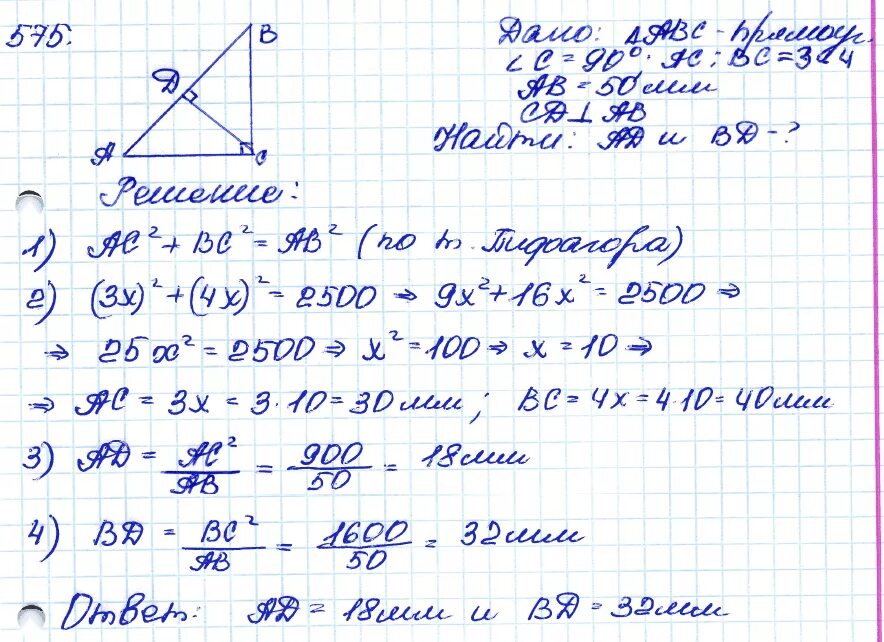 575.
B
D
A
C
Дано: △ABC - прямоуг.
∠C = 90°. AC : BC = 3 : 4
AB = 50 мм
CD ⊥ AB
Найти: AD и BD - ?
Решение:
1) AC² + BC² = AB² (по т. Пифагора)
2) (3x)² + (4x)² = 2500 ⇒ 9x² + 16x² = 2500 ⇒
⇒ 25x² = 2500 ⇒ x² = 100 ⇒ x = 10 ⇒
⇒ AC = 3x = 3·10 = 30 мм; BC = 4x = 4·10 = 40 мм
3) AD = AC²/AB = 900/50 = 18 мм
4) BD = BC²/AB = 1600/50 = 32 мм
Ответ: AD = 18 мм и BD = 32 мм